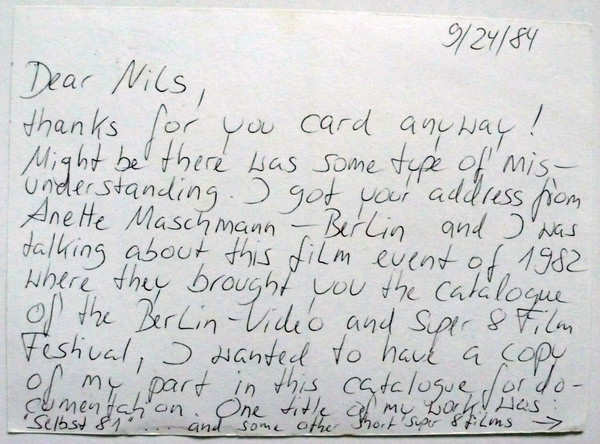 9/24/84
Dear Nils,
thanks for you card anyway!
Might be there was some type of mis-
understanding. I got your address from
Anette Maschmann - Berlin and I was
talking about this film event of 1982
where they brought you the catalogue
of the Berlin-Video and Super 8 Film
Festival, I wanted to have a copy
of my part in this catalogue for do-
cumentation. One title of my work was:
"Selbst 81" ... and some other short super 8 films →